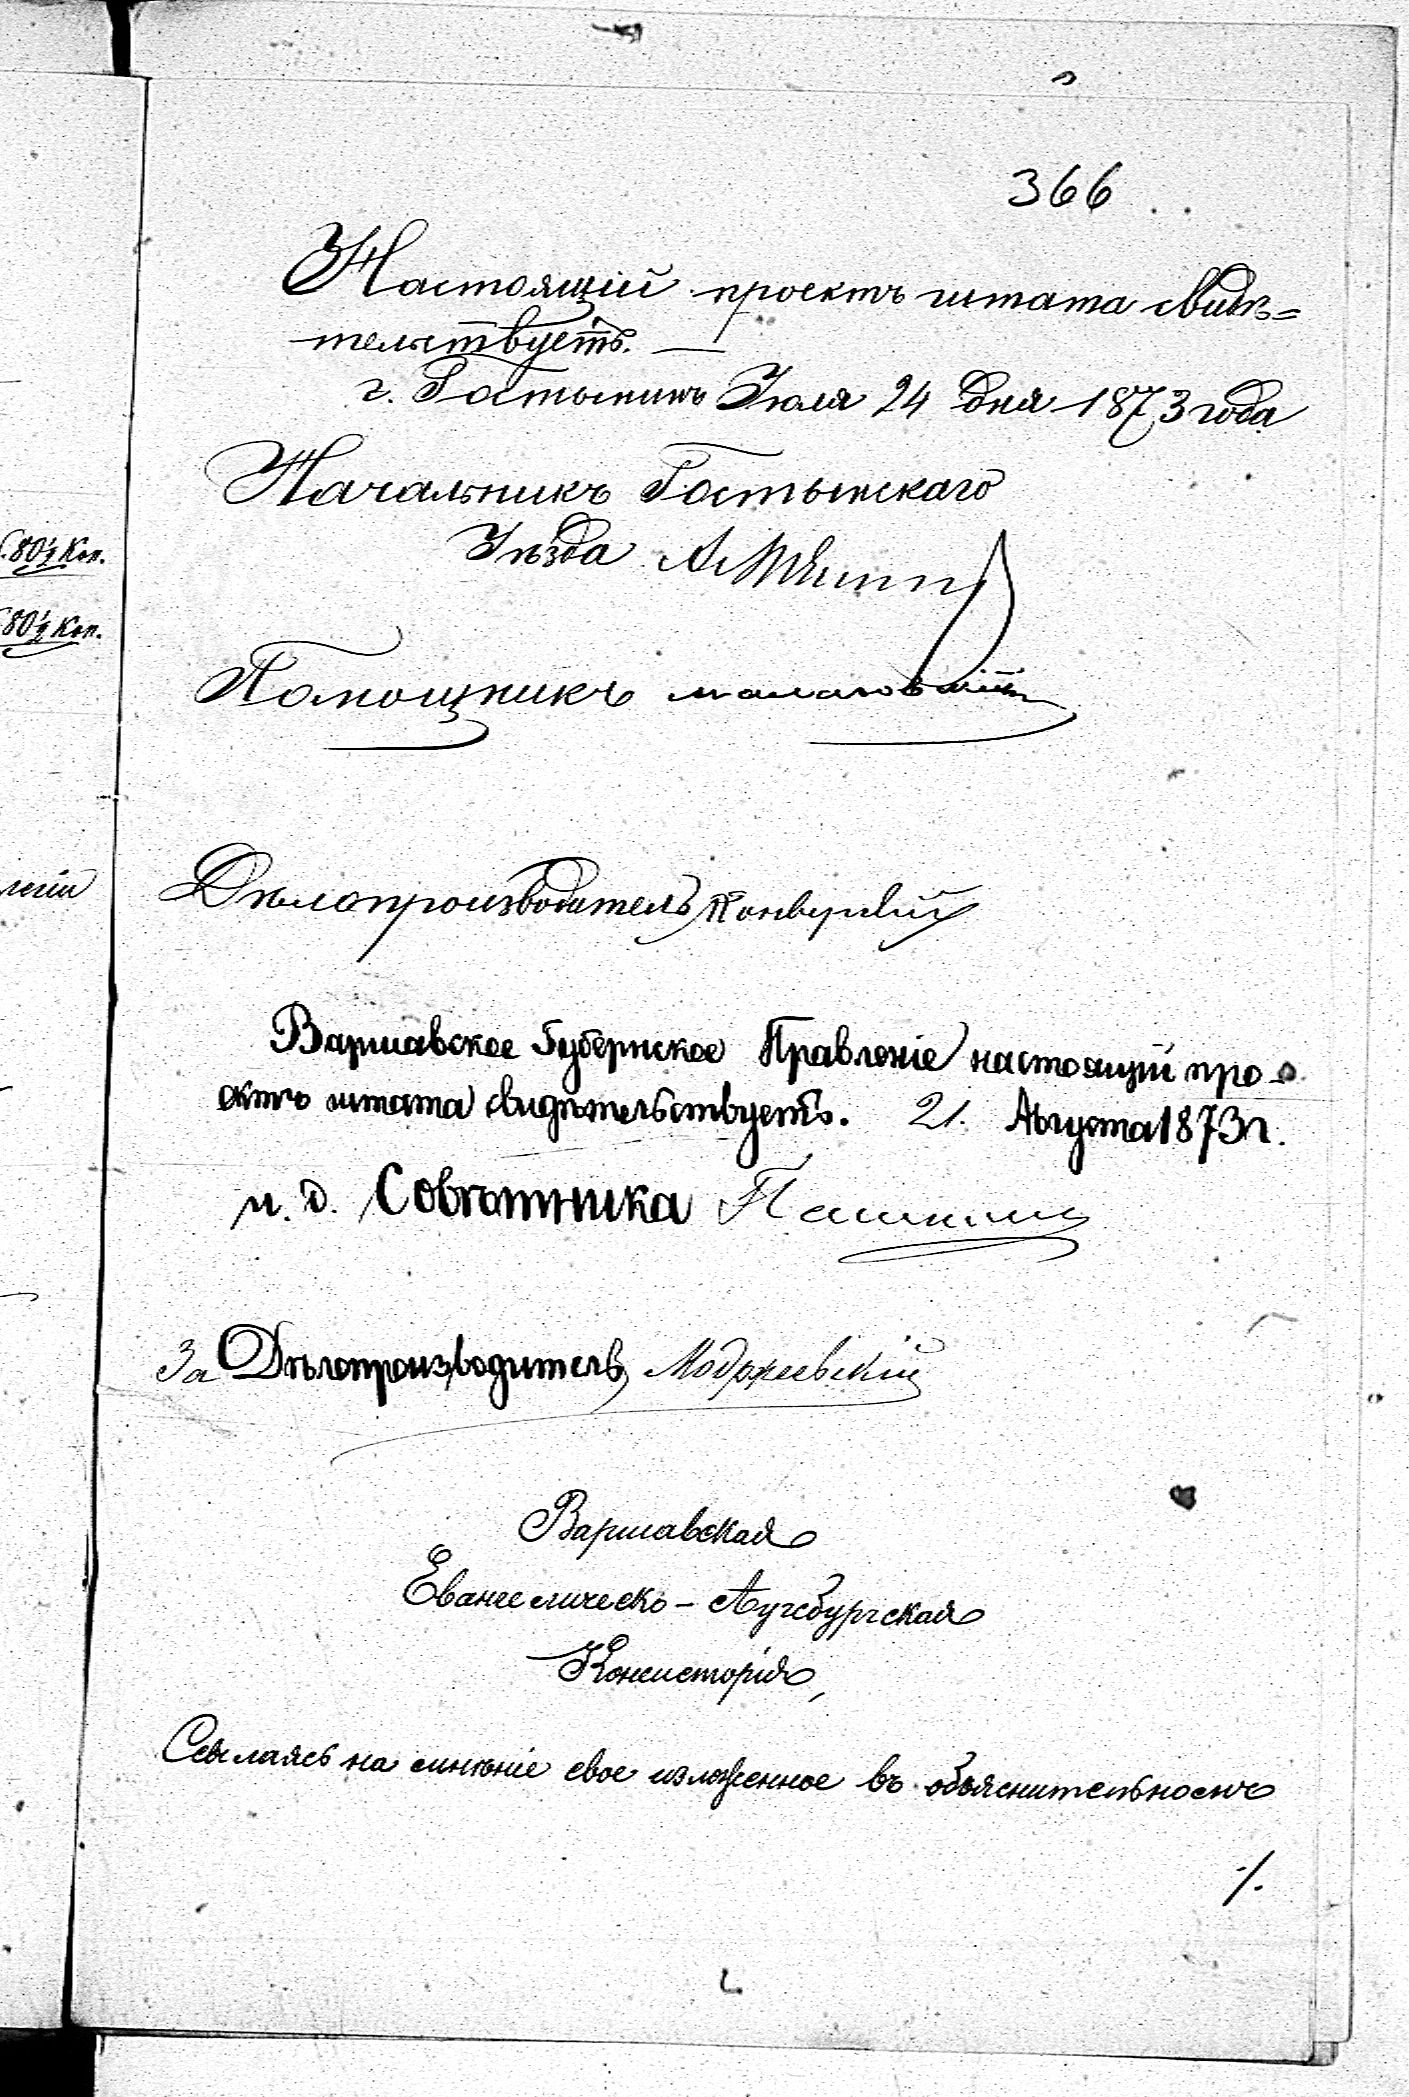 366
Настоящій проектъ штата свидѣ=
тельствуетъ. —
г. Гостынинъ Іюля 24 дня 1873 года
Начальникъ Гостынскаго
Уѣзда
Помощникъ
Дѣлопроизводитель
Варшавское Губернское Правленіе настоящій про-
эктъ штата свидѣтельствуетъ. 21. Августа 1873 г.
и. д. Совѣтника
За Дѣлопроизводитель Модржеевскій
Варшавская
Евангелическо-Аугсбургская
Консисторія,
Ссылаясь на мнѣніе свое изложенное въ объяснительномъ
./.
80½ Коп.
80½ Коп.